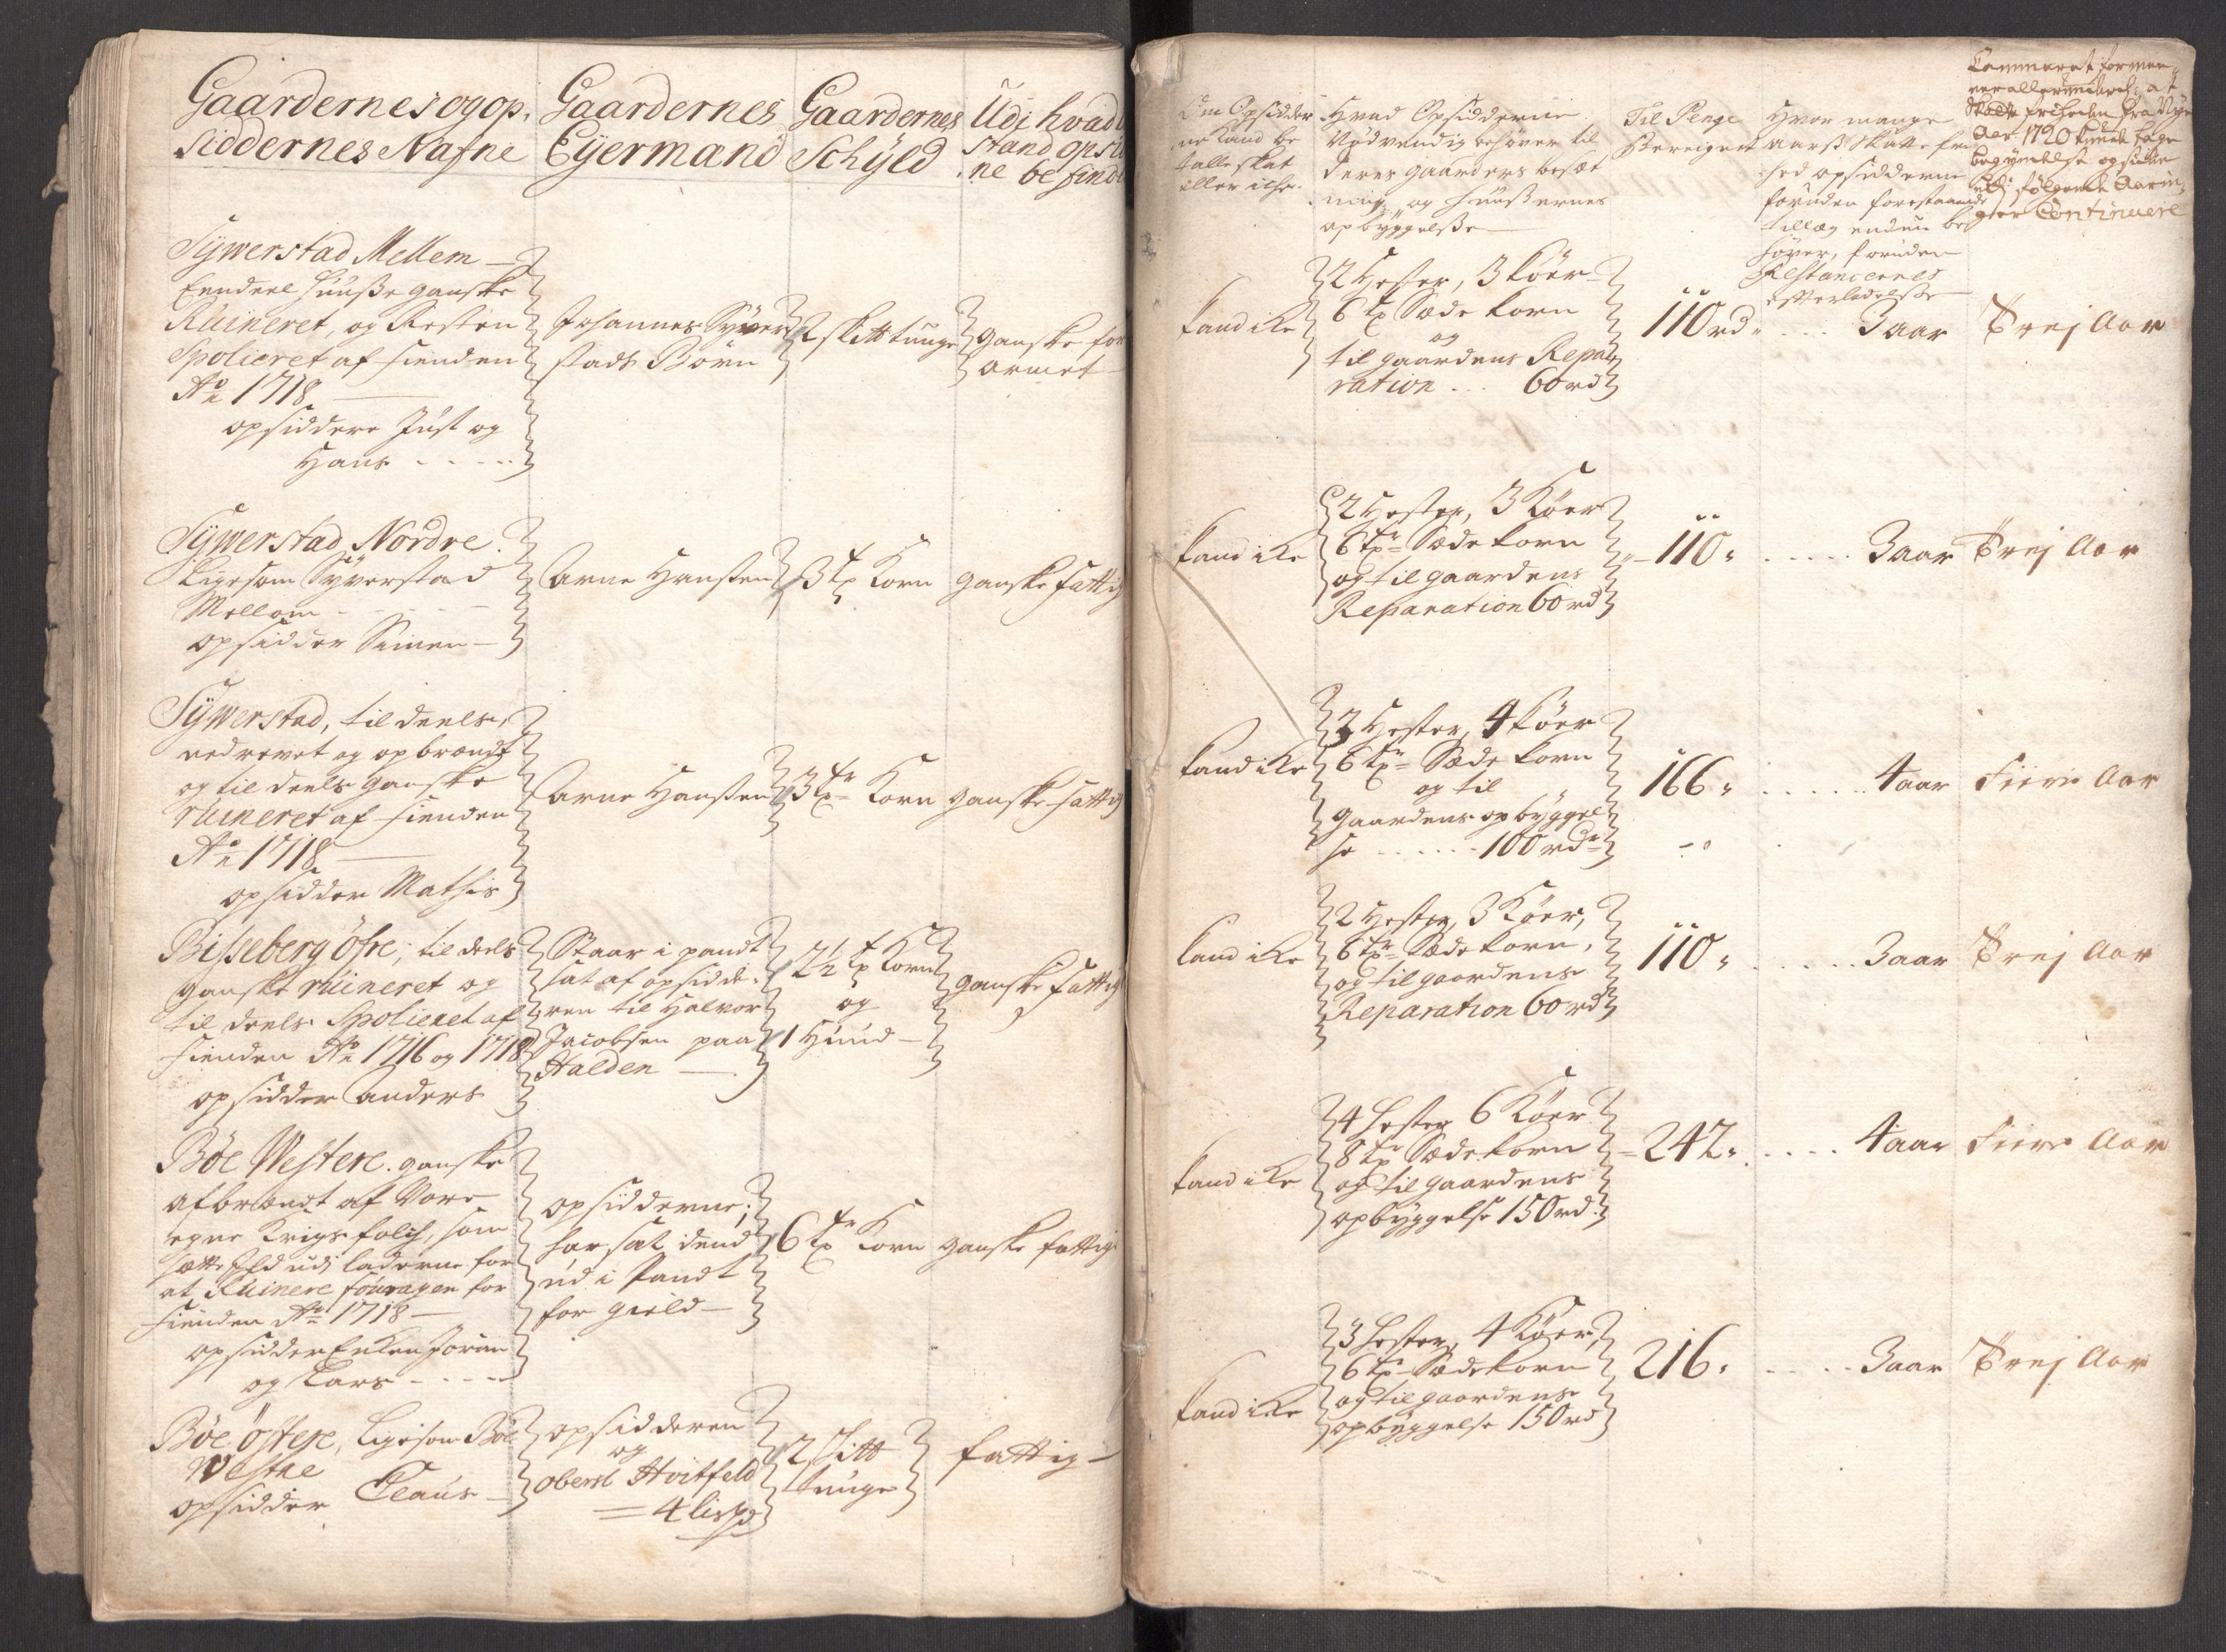 Gaardernes og op,
siddernes Nafne
Gaardernes
Eÿermand
Gaardernes
Schÿld
Udj hvad
stand opsid
ne befinde
Sÿwerstad Mellem
Eendeel Huuße ganske
Ruineret, og Resten
Spolieret af fienden
Aο 1718
opsiddere Just og
Hans
Johannes Sÿver
stads Børn
2 skittunge
ganske for
armet
Sÿwerstad Nordre
Ligesom Syverstad
Mellom
opsidder Simen
Arne Hanßen
3 tp Korn
ganske fattig
Sÿwerstad, til deels
nedrevet og opbrændt
og til deels ganske
ruineret af fienden
Aο 1718
opsidder Mathis
Arne Hanßen
3 tpr Korn
ganske fattig
Bisseberg Öfre, til deels
ganske ruineret og
til deels Spolieret af
fienden Aο 1716 og 1718
opsidder Anders
Staar i pandt
sat af opsidde,
ren til Halvor
Jacobsen paa
Halden
2½ tp Korn
og
1 Huud
ganske fattig
Böe Westere. ganske
afbrændt af Vore
egne Krigsfolch, som
sætte Ild udj laderne for
at Ruinere fouragen for
fienden Aο 1718
opsidder Enken Joran
og Lars
opsidderne,
har sat dend
ud i Pandt
for gield
6 tpr Korn
ganske fattig
Böe Östere, Ligesom Böe
Westre
opsidder Claus
opsidderen
og
oberst Hvitfeld
= 4 lispd
2 skitt
tunge
fattig
Om Opsidder
ne kand be
talle skat
eller icke.
Hvad Opsidderne
Nødvendig behöver til
deres gaarders besæt
ning og huußernes
opbÿggelße
Til Penge
Bereignet
Hvor mange
aarß Skatte fri
hed opsidderne
foruden forestaaende
tillæg endnu be
höver, foruden
Restancernes
efterladelße
Cammeret formee,
ner allerunderd: at
Skatte friheden fra Nye
Aar 1720 kunde tage
begyndelse og siden
udj følgende Aarin,
ger Continuere
kand ike
2 Hester, 3 köer
6 tp Sæde korn
og
til gaardens Repa,
ration 60 rd
110 rd
3 aar
Trej Aar
kand ike
2 Hester, 3 Köer
6 tpr Sæde korn
og til gaardens
Reparation 60 rd
110
3 aar
Trej Aar
kand ike
3 Hester, 4 köer
6 tpr Sæde korn
og til
gaardens opbÿggel
se 100 rdr
166
4 aar
Fiire Aar
kand ike
2 Hester, 3 Köer,
6 tpr Sæde korn,
og til gaardens
Reparation 60 rd
110
3 aar
Trej Aar
kand ike
4 hester 6 Köer
8 tpr Sæde korn
og til gaardens
opbÿggelse 150 rd
242
4 aar
Fiire Aar
kand ike
3 hester, 4 Köer,
6 tpr Sædekorn
og til gaardens
opbÿggelse 150 rd
216
3 aar
Trej Aar